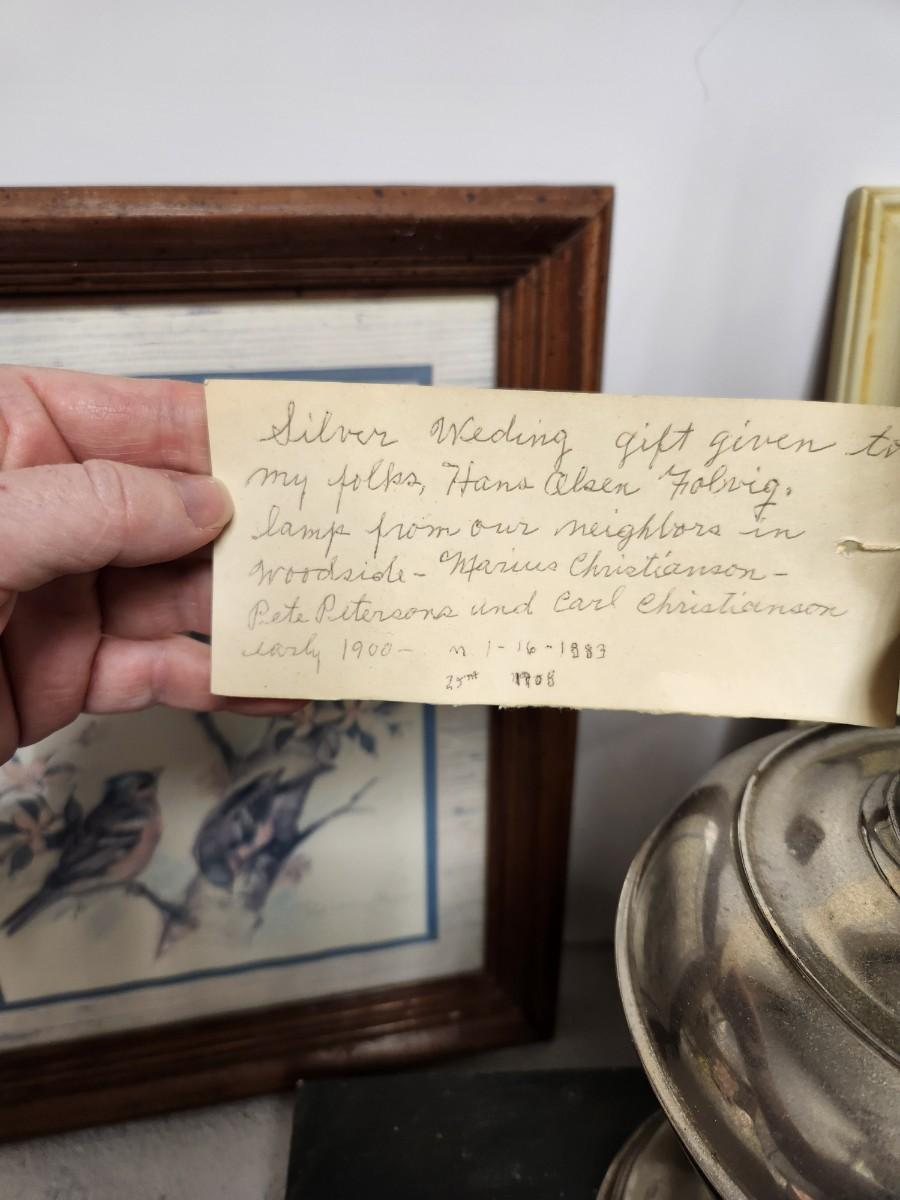 Silver Weding gift given to
my folks, Hans Olsen Folvig.
lamp from our neighbors in
Woodside - Marius Christianson -
Pete Petersons and Carl Christianson
early 1900 - m. 1-16-1883
25 1908